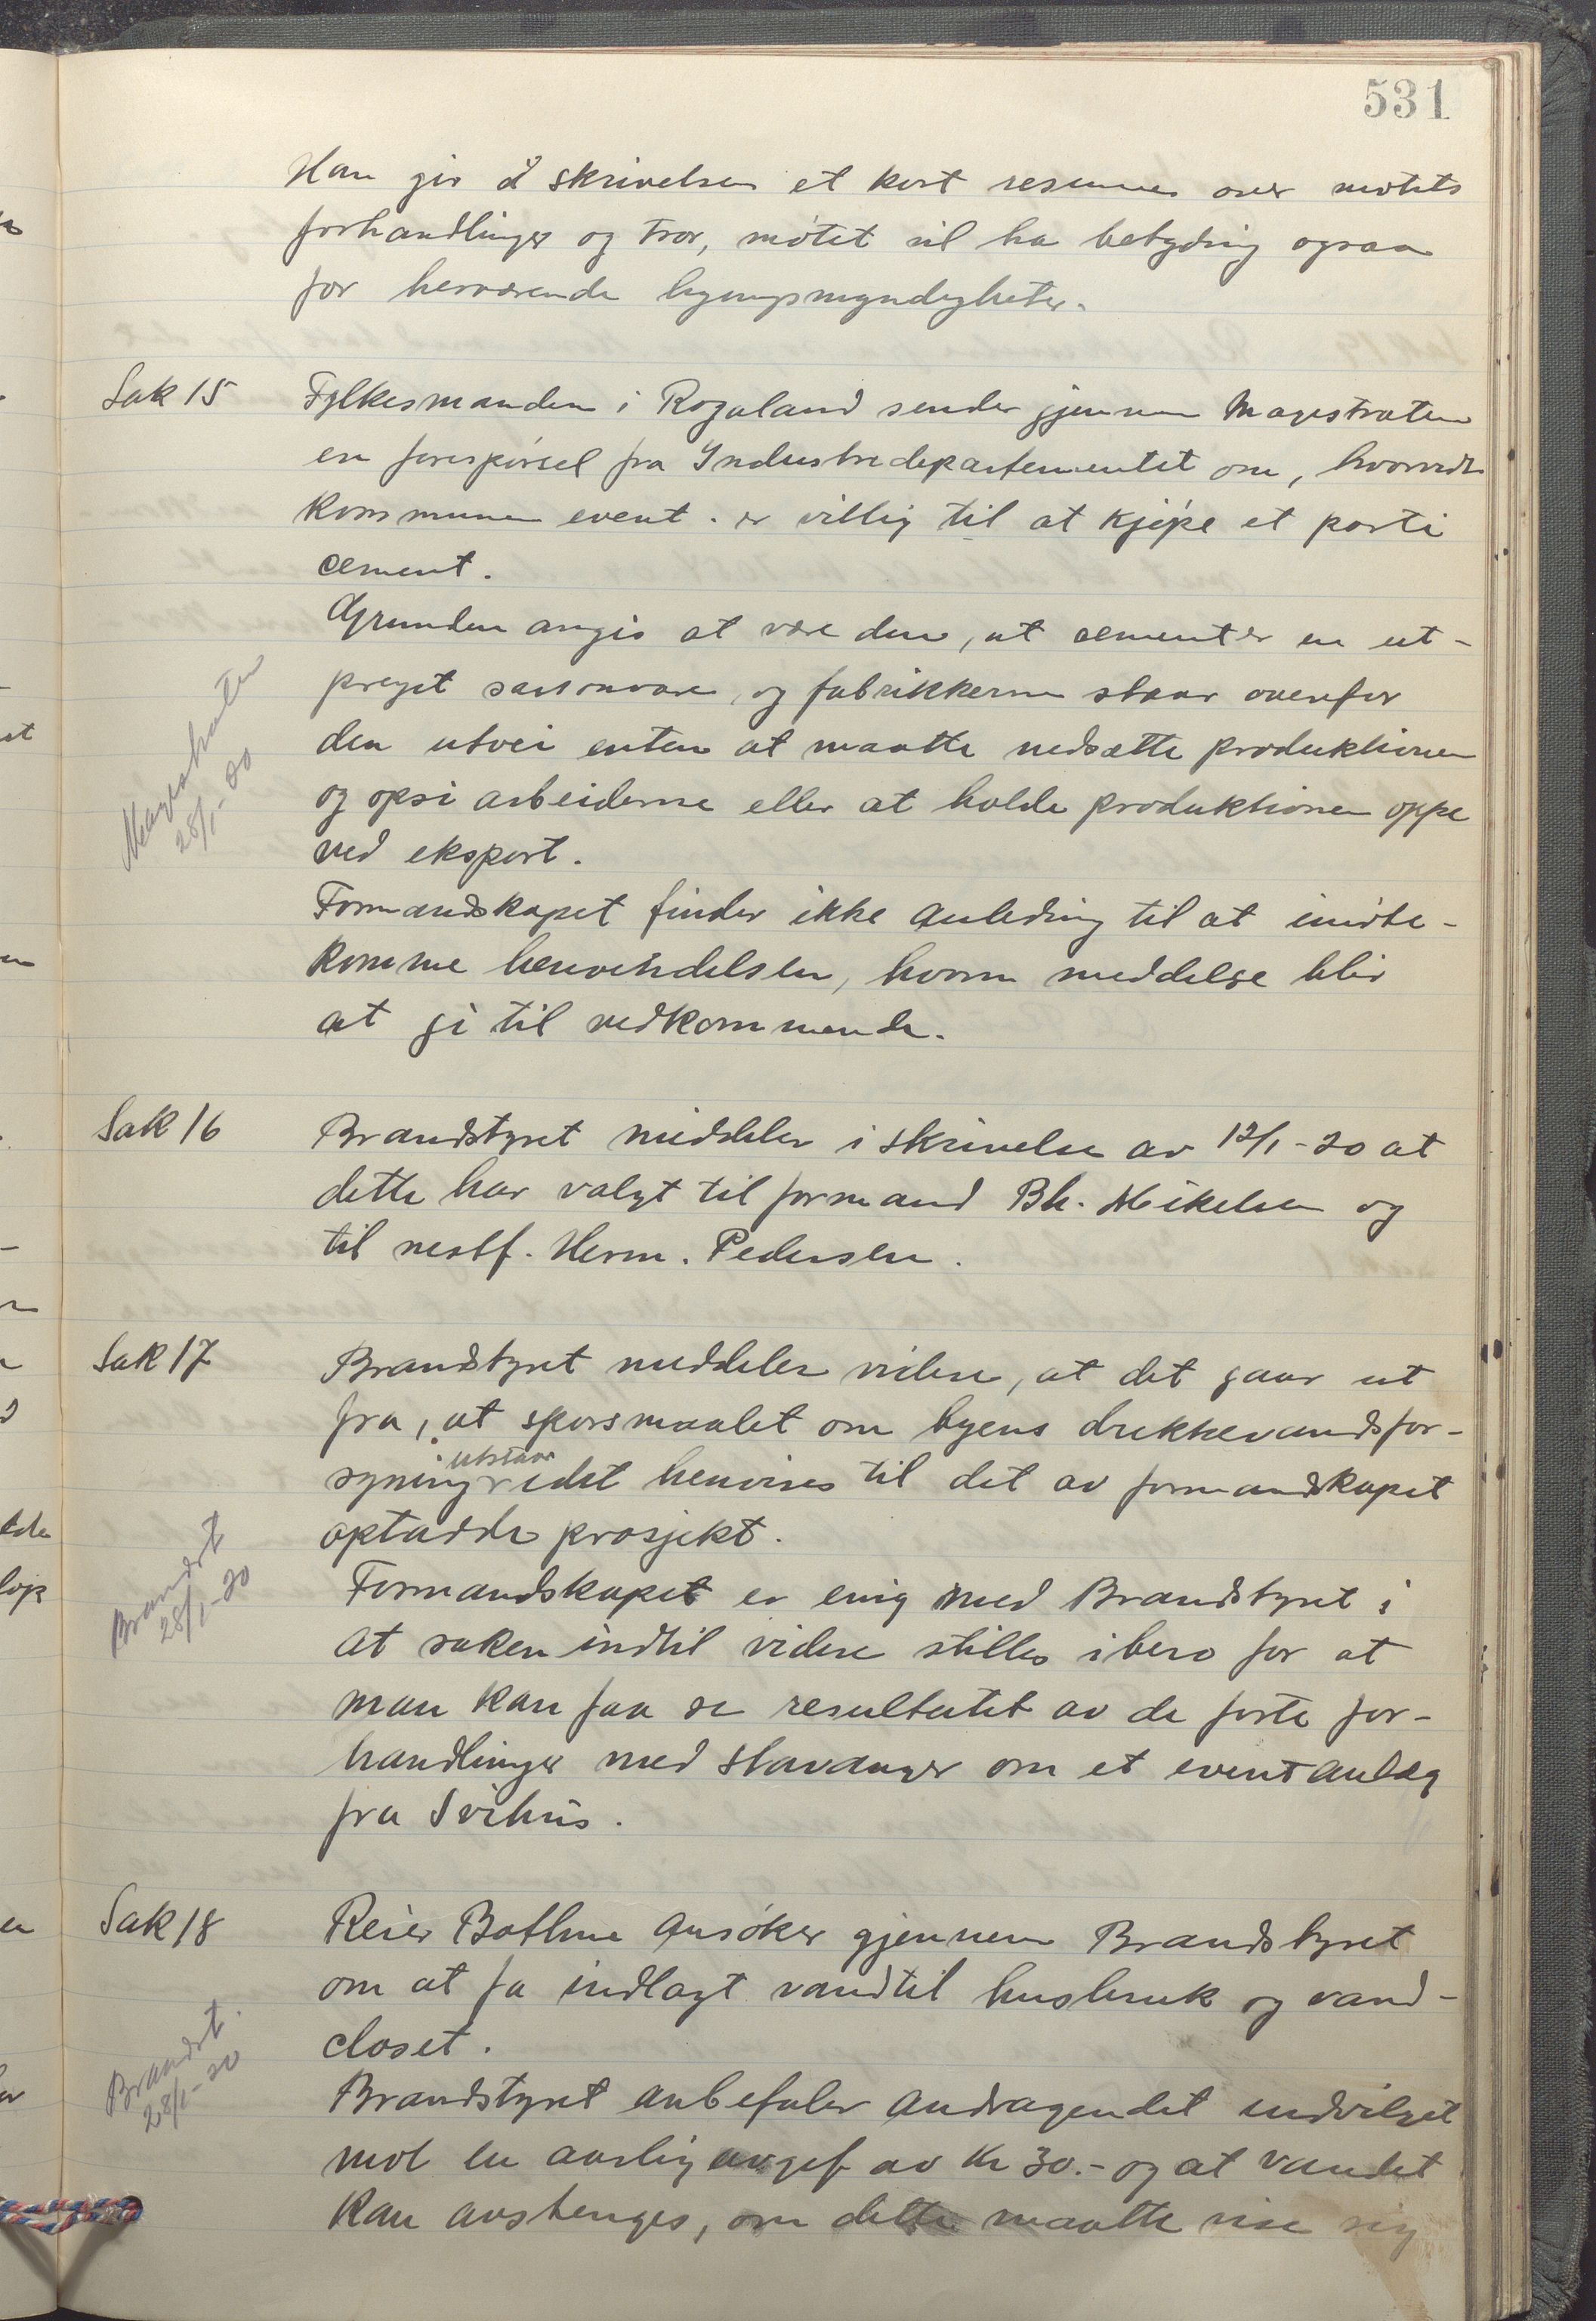 531
Han gir i skrivelsen et kort resume over møtets
forhandlinger og tror, møtet vil ha betydning ogsaa
for herværende bygningsmyndigheter.
Sak 15
Fylkesmanden i Rogaland sender gjennem Magistraten
en forespørsel fra Industridepartementet om, hvorvidt
kommunen event. er villig til at kjøpe et parti
cement.
Grunden angis at være den, at cement er en ut-
preget sæsonvare, og fabrikkerne staar ovenfor
den utvei enten at maatte nedsætte produktionen
og opsi arbeiderne eller at holde produktionen oppe
ved eksport.
Magistraten
28/1-20
Formandskapet finder ikke anledning til at imøte-
komme henvendelsen, hvorom meddelse blir
at gi til vedkommende.
Sak 16
Brandstyret meddeler i skrivelse av 12/1-20 at
dette har valgt til formand Bh. Mikelsen og
til nestf. Herm. Pedersen.
Sak 17
Brandstyret meddeler videre, at det gaar ut
fra, at spørsmaalet om byens drikkevandsfor-
utstaar
syning idet henvises til det av formandskapet
optadde prosjekt.
Brandst
28/1-20
Formandskapet er enig med Brandstyret i
at saken indtil videre stilles i bero for at
man kan faa se resultatet av de førte for-
handlinger med Stavanger om et event anlæg
fra Svihus.
Sak 18
Reier Bothne ansøker gjennem Brandstyret
om at fa indlagt vand til husbruk og vand-
closet.
Brandst.
28/1-20
Brandstyret anbefaler andragendet indvilget
mot en aarlig avgif av kr 30.- og at vandet
kan avstenges, om dette maatte vise sig